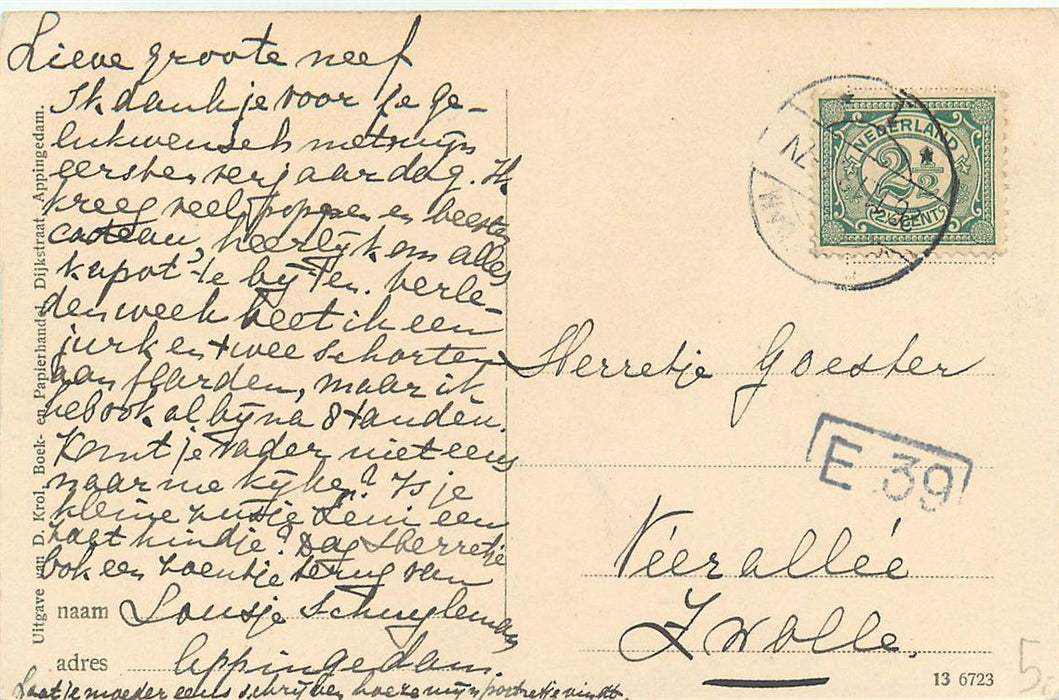 Lieve groote neef
Ik dank je voor je ge-
lukwensch met mijn
eersten verjaardag. Ik
kreeg veel poppen en beesten
cadeau, heerlijk om alles
kapot te bijten. Verle-
den week beet ik een
jurk en twee schorten
aan flarden, maar ik
heb ook al bijna 8 tanden.
Komt je vader niet eens
naar me kijke? Is je
kleine zusje Leni een
zoet kindje? Dag Sherretje
ook een zoentje terug van
naam Lousje Schuyleman
adres Appingedam.
Laat je moeder eens schrijven hoe ze mijn portretje vindt.
Uitgave van D. Krol, Boek- en Papierhandel, Dijkstraat, Appingedam.
NEDERLAND
2½
2½ CENT
Sherretje Goester
E 39
Véérallée
Zwolle.
13 6723
5.